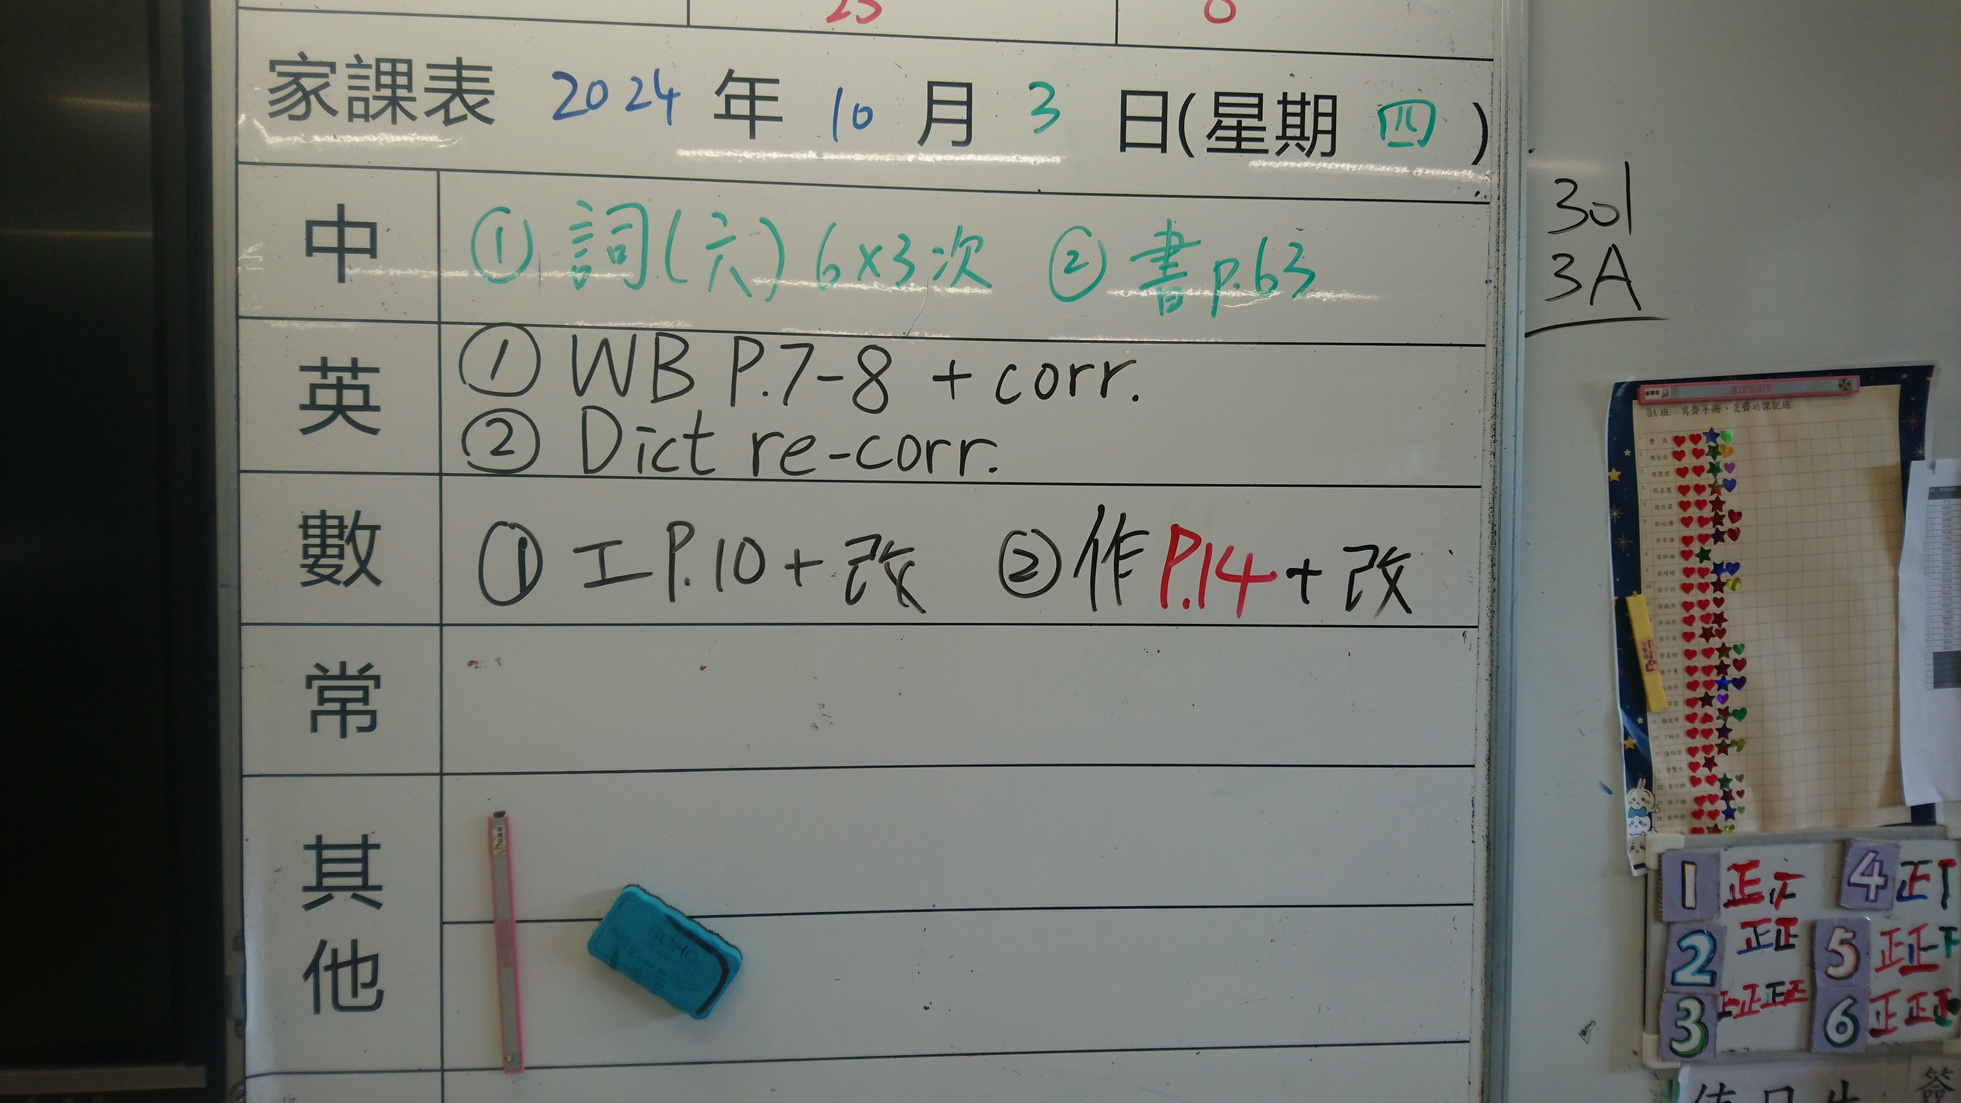 家課表 2024 年 10 月 3 日(星期 四 )
中 ① 詞(六) 6x3次 ② 書p.63
英 ① WB P.7-8 + corr.
② Dict re-corr.
數 ① 工 P.10 + 改 ② 作 P.14 + 改
常
其他
301
3A
1 正
4 正
2 正正
5 正正
3
6 正正正